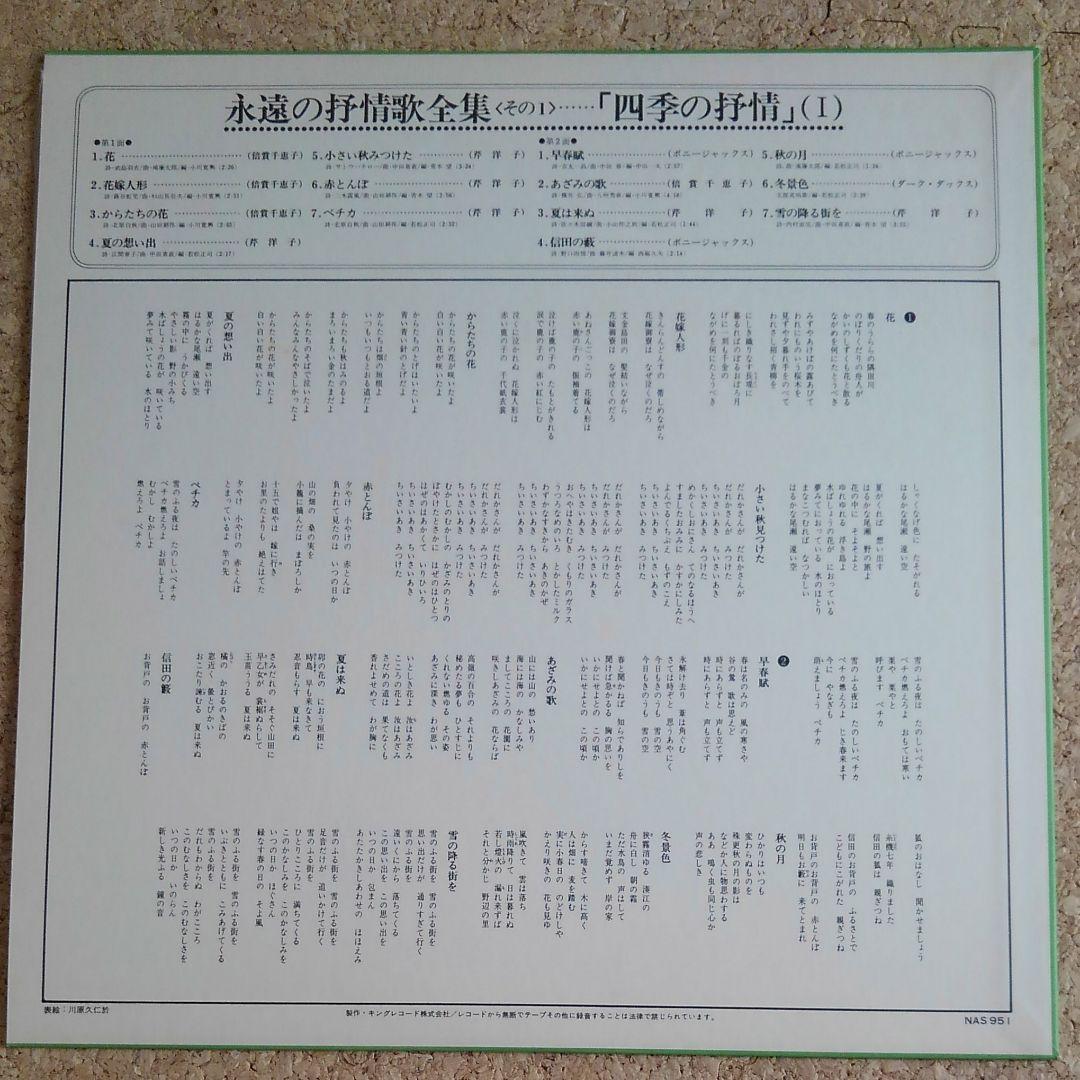 永遠の抒情歌全集〈その1〉……「四季の抒情」(Ⅰ)
●第1面●
1.花……………………(倍賞千恵子)
2.花嫁人形……………(倍賞千恵子)
3.からたちの花………(倍賞千恵子)
4.夏の想い出…………(芹 洋 子)
5.小さい秋みつけた…………(芹 洋 子)
6.赤とんぼ……………………(芹 洋 子)
7.ペチカ………………………(芹 洋 子)
●第2面●
1.早春賦…………………(ボニージャックス)
2.あざみの歌……………(倍 賞 千 恵 子)
3.夏は来ぬ………………(芹 洋 子)
4.信田の藪………………(ボニージャックス)
5.秋の月…………………(ボニージャックス)
6.冬景色…………………(ダーク・ダックス)
7.雪の降る街を…………(芹 洋 子)
❶
花
春のうららの隅田川
のぼりくだりの舟人が
かいのしずくも花と散る
ながめを何にたとうべき
みずやあけぼの露あびて
われにものいう桜木を
見ずや夕暮れ手をのべて
われさし招く青柳を
にしき織りなす長堤に
暮るればのぼるおぼろ月
げに一刻も千金の
ながめを何にたとうべき
花嫁人形
きんらんどんすの 帯しめながら
花嫁御寮は なぜ泣くのだろ
文金島田の 髪結いながら
花嫁御寮は なぜ泣くのだろ
あねさんごっこの 花嫁人形は
赤い鹿の子の 振袖着てる
泣けば鹿の子の たもとがきれる
涙で鹿の子の 赤い紅にじむ
泣くに泣かれぬ 花嫁人形は
赤い鹿の子の 千代紙衣裳
からたちの花
からたちの花が咲いたよ
白い白い花が咲いたよ
からたちのとげはいたいよ
青い青い針のとげだよ
からたちは畑の垣根よ
いつもいつもとおる道だよ
からたちも秋はみのるよ
まろいまろい金のたまだよ
からたちのそばで泣いたよ
みんなみんなやさしかったよ
からたちの花が咲いたよ
白い白い花が咲いたよ
夏の想い出
夏がくれば 想い出す
はるかな尾瀬 遠い空
霧の中に うかびくる
やさしい影 野の小みち
水ばしょうの花が 咲いている
夢みて咲いている 水のほとり
しゃくなげ色に たそがれる
はるかな尾瀬 遠い空
夏がくれば 想い出す
はるかな尾瀬 野の旅よ
花の中に そよそよと
ゆれゆれる 浮き島よ
水ばしょうの花が におっている
夢みてにおっている 水のほとり
まなこつむれば なつかしい
はるかな尾瀬 遠い空
小さい秋見つけた
だれかさんが だれかさんが
だれかさんが みつけた
ちいさいあき ちいさいあき
ちいさいあき みつけた
めかくしおにさん てのなるほうへ
すましたおみみに かすかにしみた
よんでるくちぶえ もずのこえ
ちいさいあき ちいさいあき
ちいさいあき みつけた
だれかさんが だれかさんが
だれかさんが みつけた
ちいさいあき ちいさいあき
ちいさいあき みつけた
おへやはきたむき くもりのガラス
うつろなめのいろ とかしたミルク
わずかなすきから あきのかぜ
ちいさいあき ちいさいあき
ちいさいあき みつけた
だれかさんが だれかさんが
だれかさんが みつけた
ちいさいあき ちいさいあき
ちいさいあき みつけた
むかしのむかしの かざみのとりの
ぼやけたとさかに はぜのはひとつ
はぜのはあかくて いりひいろ
ちいさいあき ちいさいあき
ちいさいあき みつけた
赤とんぼ
夕やけ 小やけの 赤とんぼ
負われて見たのは いつの日か
山の畑の 桑の実を
小籠に摘んだは まぼろしか
十五で姐やは 嫁に行き
お里のたよりも 絶えはてた
夕やけ 小やけの 赤とんぼ
とまっているよ 竿の先
ペチカ
雪のふる夜は たのしいペチカ
ペチカ燃えろよ お話しましょ
むかし むかしよ
燃えろよ ペチカ
雪のふる夜は たのしいペチカ
ペチカ燃えろよ おもては寒い
栗や 栗やと
呼びます ペチカ
雪のふる夜は たのしいペチカ
ペチカ燃えろよ じき春来ます
今に やなぎも
萌えましょう ペチカ
❷
早春賦
春は名のみの 風の寒さや
谷の鶯 歌は思えど
時にあらずと 声も立てず
時にあらずと 声も立てず
氷解け去り 葦は角ぐむ
さては時ぞと 思うあやにく
今日もきのうも 雪の空
今日もきのうも 雪の空
春と聞かねば 知らでありしを
聞けば急かるる 胸の思いを
いかにせよとの この頃か
いかにせよとの この頃か
あざみの歌
山には山の 愁いあり
海には海の かなしみや
ましてこころの 花園に
咲きしあざみの 花ならば
高嶺の百合の それよりも
秘めたる夢も ひとすじに
くれない燃ゆる その姿
あざみに深き わが思い
いとしき花よ 汝はあざみ
こころの花よ 汝はあざみ
さだめの道は 果てなくも
香れよせめて わが胸に
夏は来ぬ
卯の花の におう垣根に
時鳥 早も来なきて
忍音もらす 夏は来ぬ
さみだれの そそぐ山田に
早乙女が 裳裾ぬらして
玉苗ううる 夏は来ぬ
橘の かおるのきばの
窓近く 螢とびかい
おこたり諫むる 夏は来ぬ
信田の藪
お背戸の お背戸の 赤とんぼ
狐のおはなし 聞かせましょう
糸機七年 織りました
信田の狐は 親ぎつね
信田のお背戸の ふるさとで
こどもにこがれた 親ぎつね
お背戸のお背戸の 赤とんぼ
明日もお藪に 来てとまれ
秋の月
ひかりはいつも
変わらぬものを
殊更秋の月の影は
などか人に物思わする
ああ 鳴く虫も同じ心か
声の悲しき
冬景色
狭霧消ゆる 湊江の
舟に白し 朝の霜
ただ水鳥の 声はして
いまだ覚めず 岸の家
からす啼きて 木に高く
人は畑に 麦を踏む
実に小春日の のどけしや
かえり咲きの 花も見ゆ
嵐吹きて 雲は落ち
時雨降りて 日は暮れぬ
若し燈火の 漏れ来ずば
それと分かじ 野辺の里
雪の降る街を
雪のふる街を 雪のふる街を
思い出だけが 通りすぎて行く
雪のふる街を
遠いくにから 落ちてくる
この思い出を この思い出を
いつの日か 包まん
あたたかきしあわせの ほほえみ
雪のふる街を 雪のふる街を
足音だけが 追いかけて行く
雪のふる街を
ひとりこころに 満ちてくる
このかなしみを このかなしみを
いつの日か ほぐさん
緑なす春の日の そよ風
雪のふる街を 雪のふる街を
いぶきとともに こみあげてくる
雪のふる街を
だれもわからぬ わがこころ
このむなしさを このむなしさを
いつの日か いのらん
新しき光ふる 鐘の音
表絵：川原久仁於
製作・キングレコード株式会社／レコードから無断でテープその他に録音することは法律で禁じられています。
NAS 951